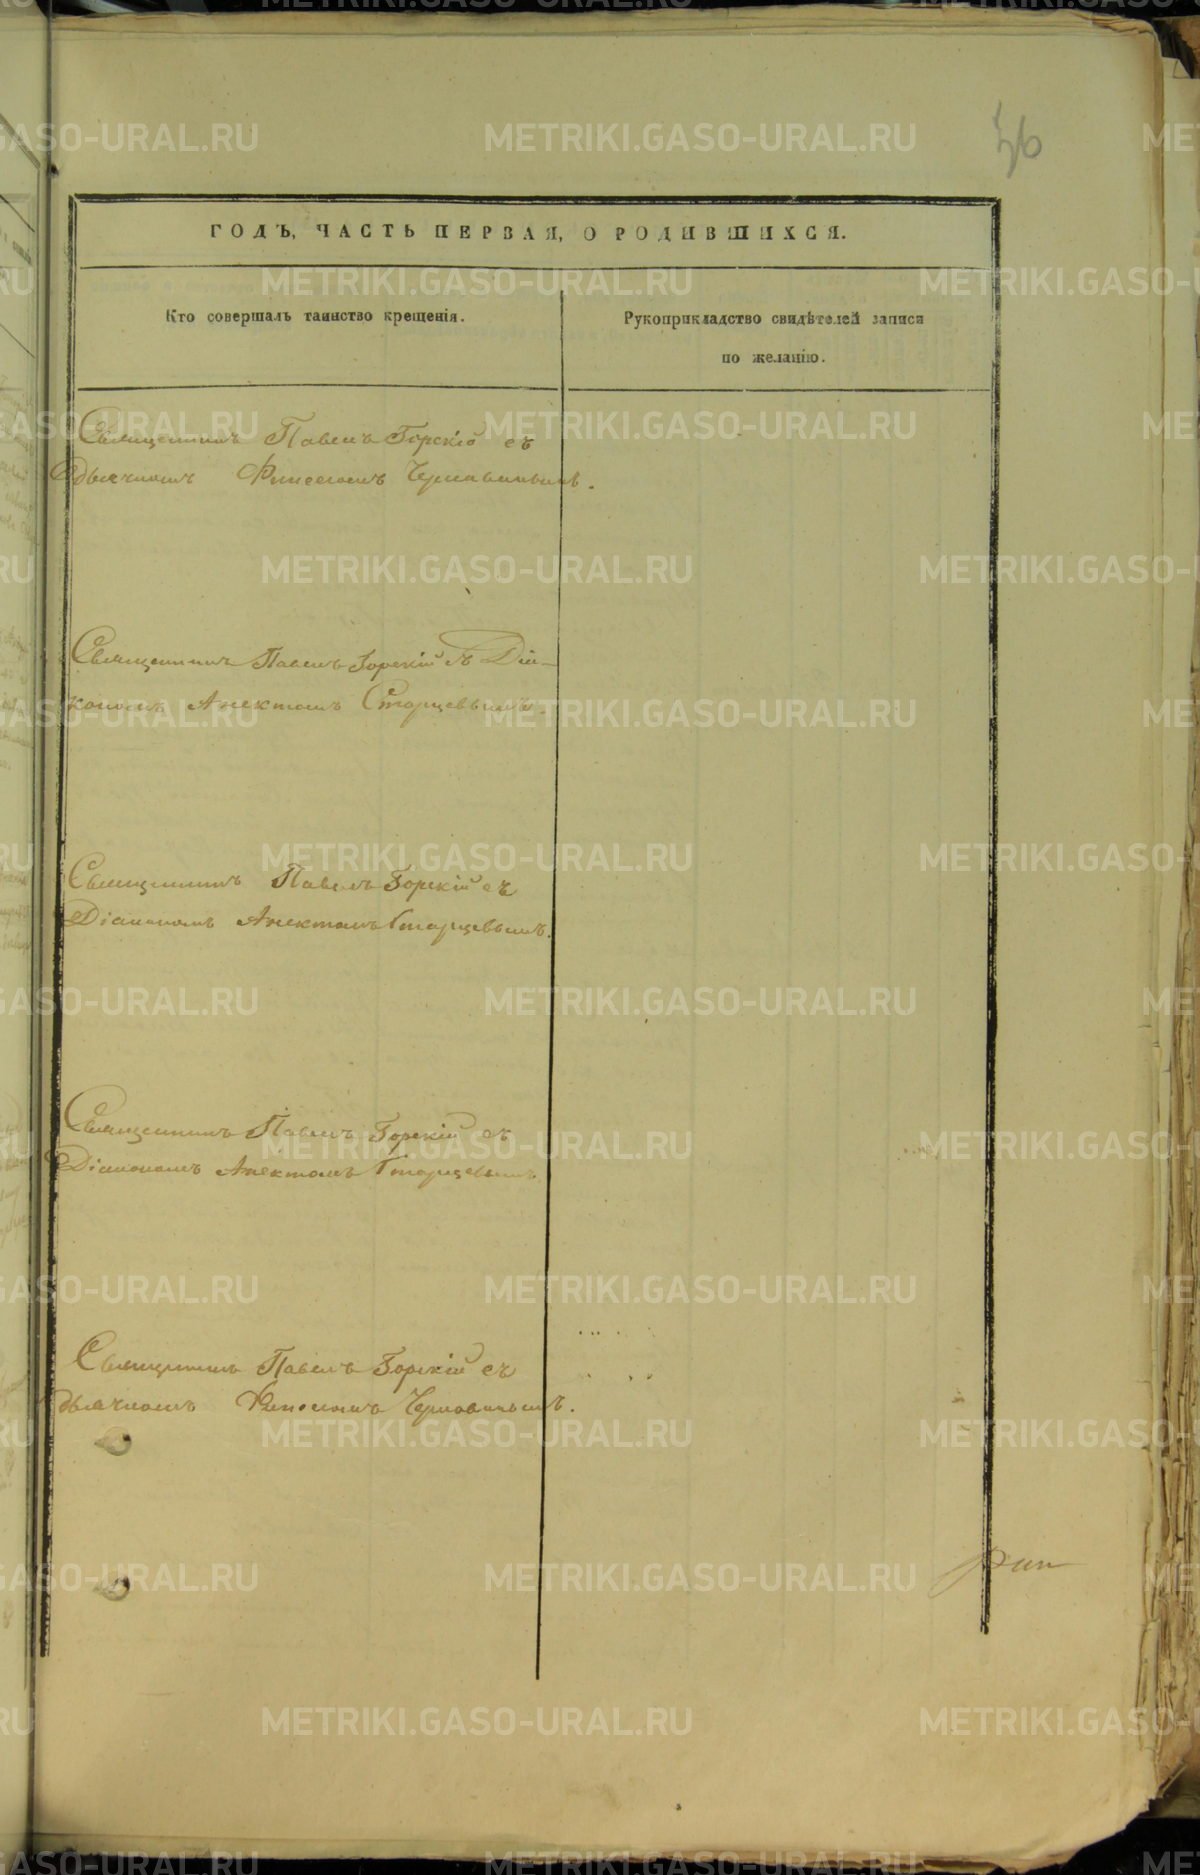 36
ГОДЪ, ЧАСТЬ ПЕРВАЯ, О РОДИВШИХСЯ.
Кто совершалъ таинство крещенія.
Рукоприкладство свидѣтелей записи
по желанію.
Священникъ Павелъ Горскій съ
дьячкомъ Финеесомъ Чернавинымъ.
Священникъ Павелъ Горскій съ Діа-
кономъ Анектомъ Старцевымъ.
Священникъ Павелъ Горскій съ
Діакономъ Анектомъ Старцевымъ.
Священникъ Павелъ Горскій съ
Діакономъ Анектомъ Старцевымъ
Священникъ Павелъ Горскій съ
дьячкомъ Финеесомъ Чернавинымъ.
METRIKI.GASO-URAL.RU